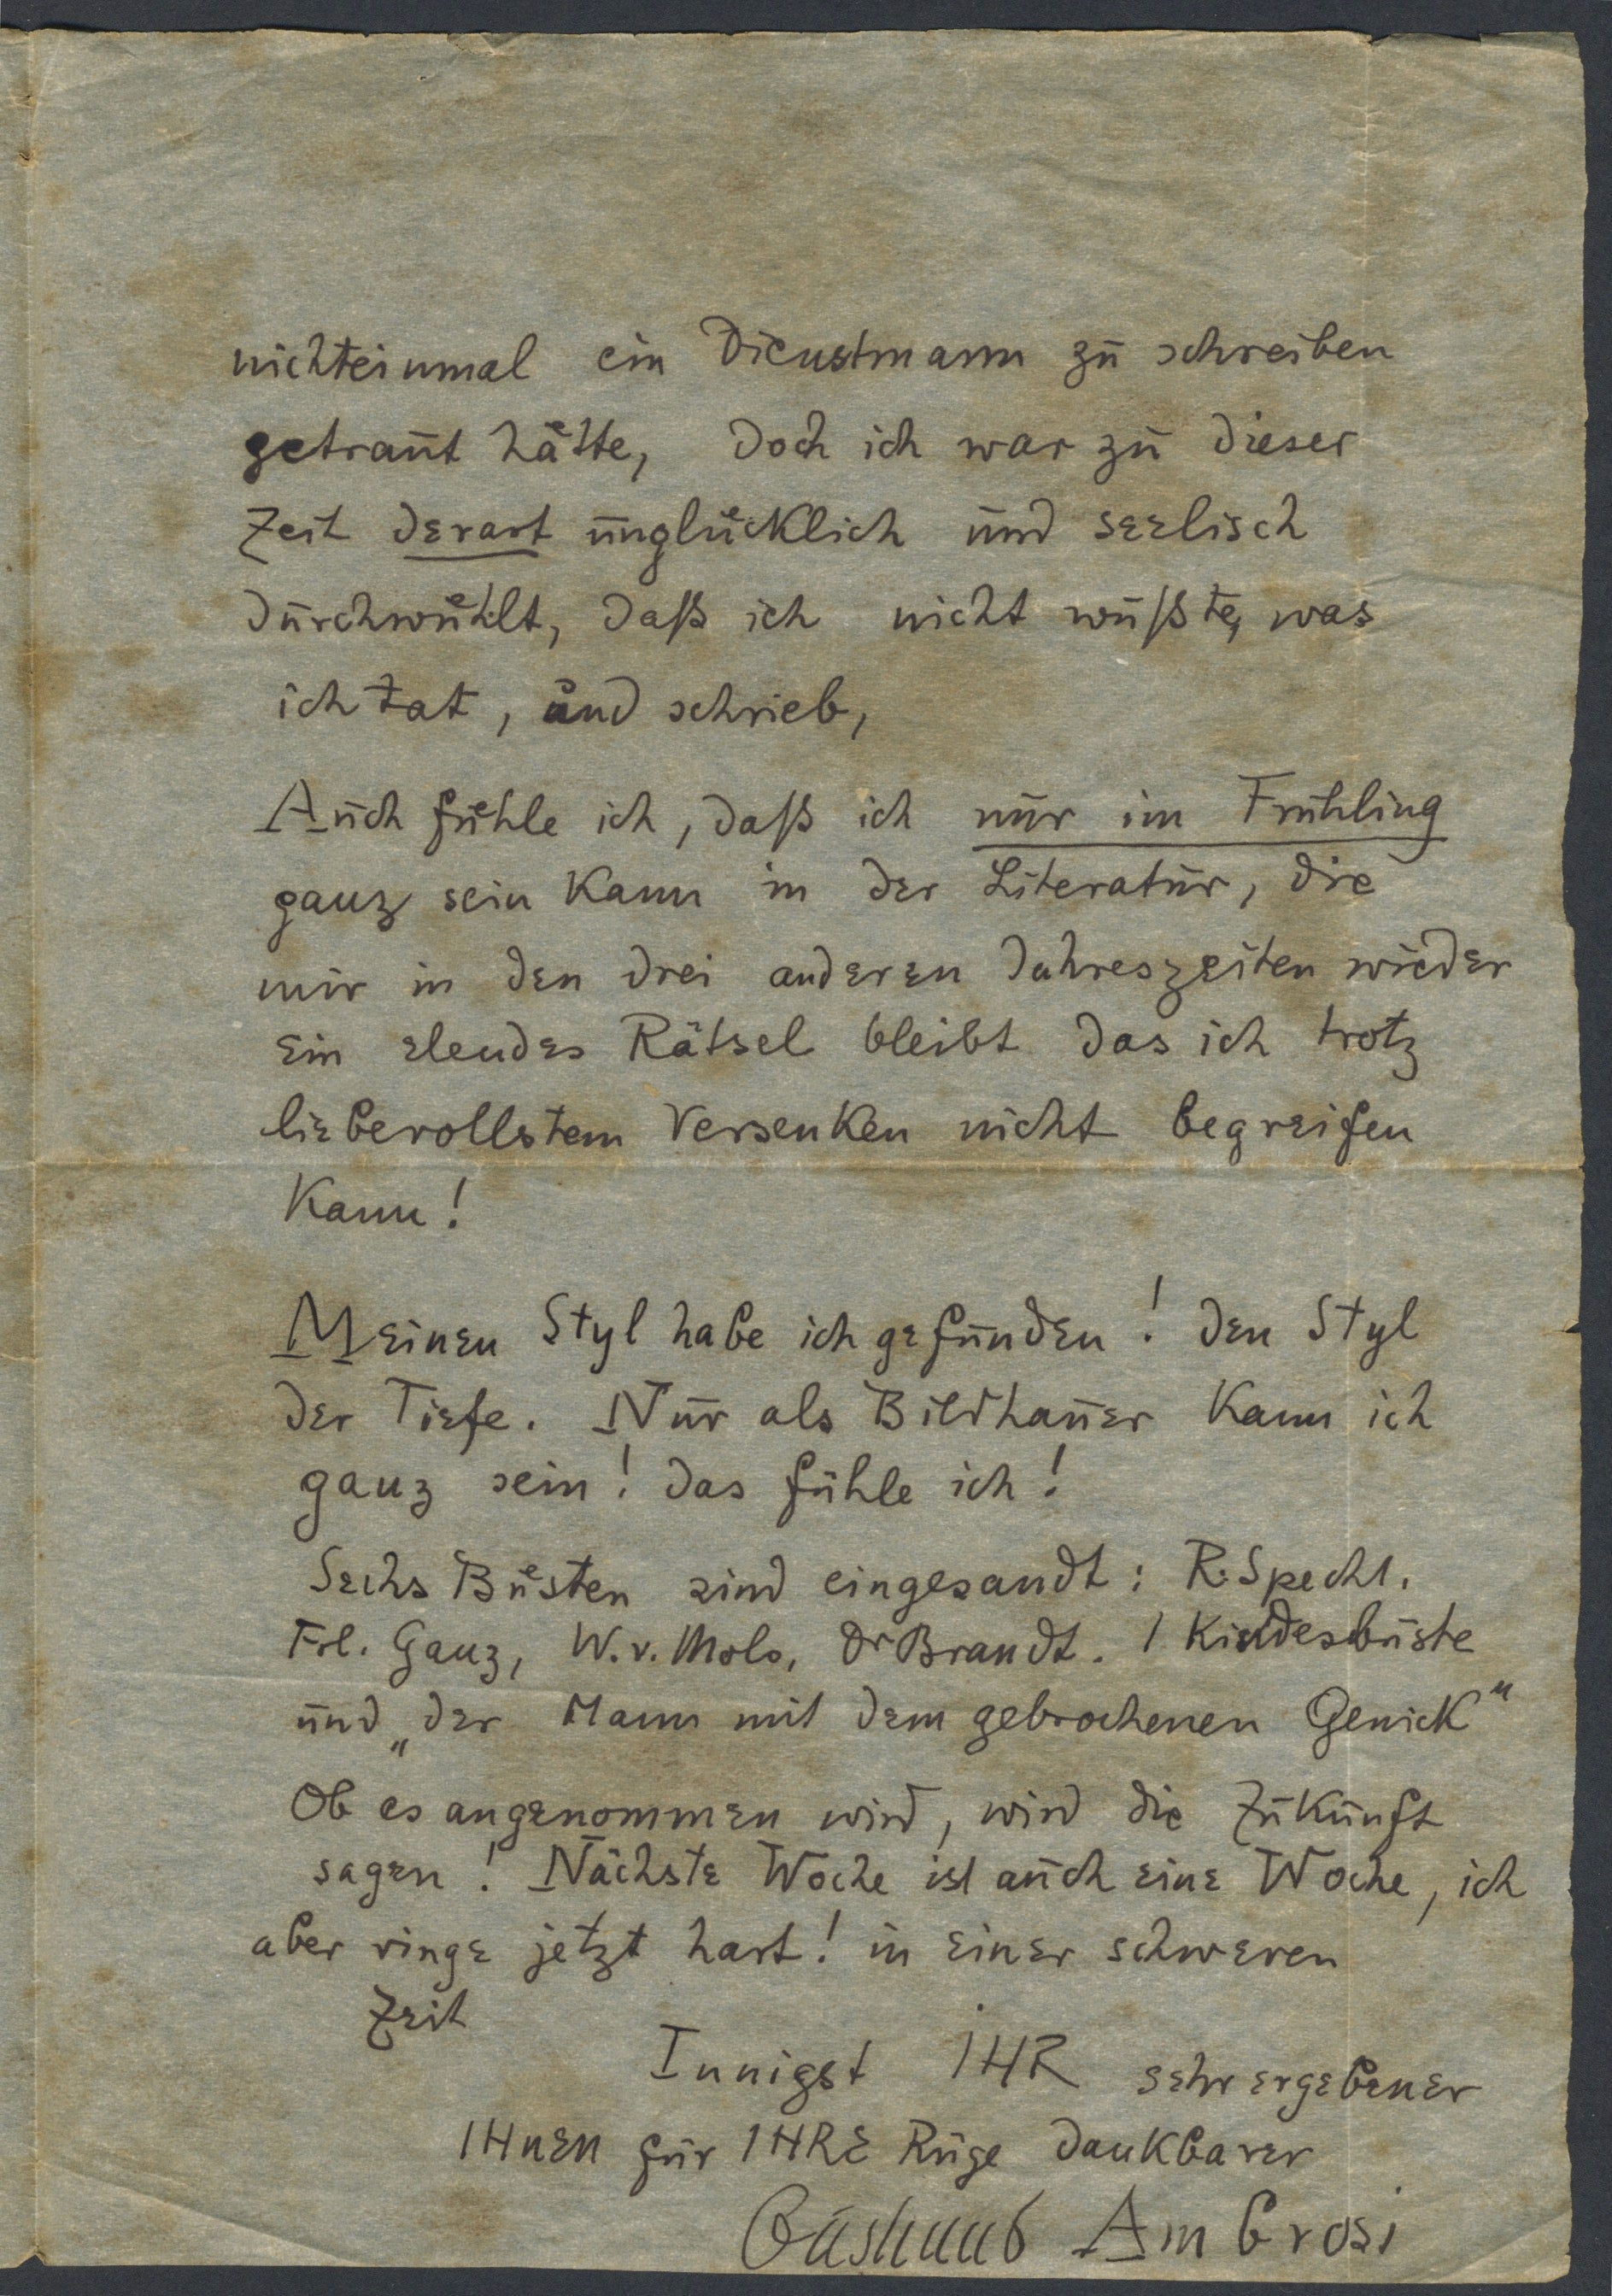 nichteinmal ein Dienstmann zu schreiben
getraut hätte, doch ich war zu dieser
Zeit derart unglücklich und seelisch
durchwühlt, daß ich nicht wußte, was
ich tat, und schrieb,
Auch fühle ich, daß ich nur im Frühling
ganz sein kann in der Literatur, die
mir in den drei anderen Jahreszeiten wieder
ein elendes Rätsel bleibt das ich trotz
liebevollstem Versenken nicht begreifen
kann!
Meinen Styl habe ich gefunden! den Styl
der Tiefe. Nur als Bildhauer kann ich
ganz sein! das fühle ich!
Sechs Büsten sind eingesandt: R. Specht.
Frl. Ganz, W. v. Molo, Dr Brandt. 1 Kindesbüste
und „der Mann mit dem gebrochenen Genick"
Ob es angenommen wird, wird die Zukunft
sagen! Nächste Woche ist auch eine Woche, ich
aber ringe jetzt hart! in einer schweren
Zeit
Innigst IHR sehr ergebener
IHnEn für IHRE Rüge dankbarer
Ambrosi